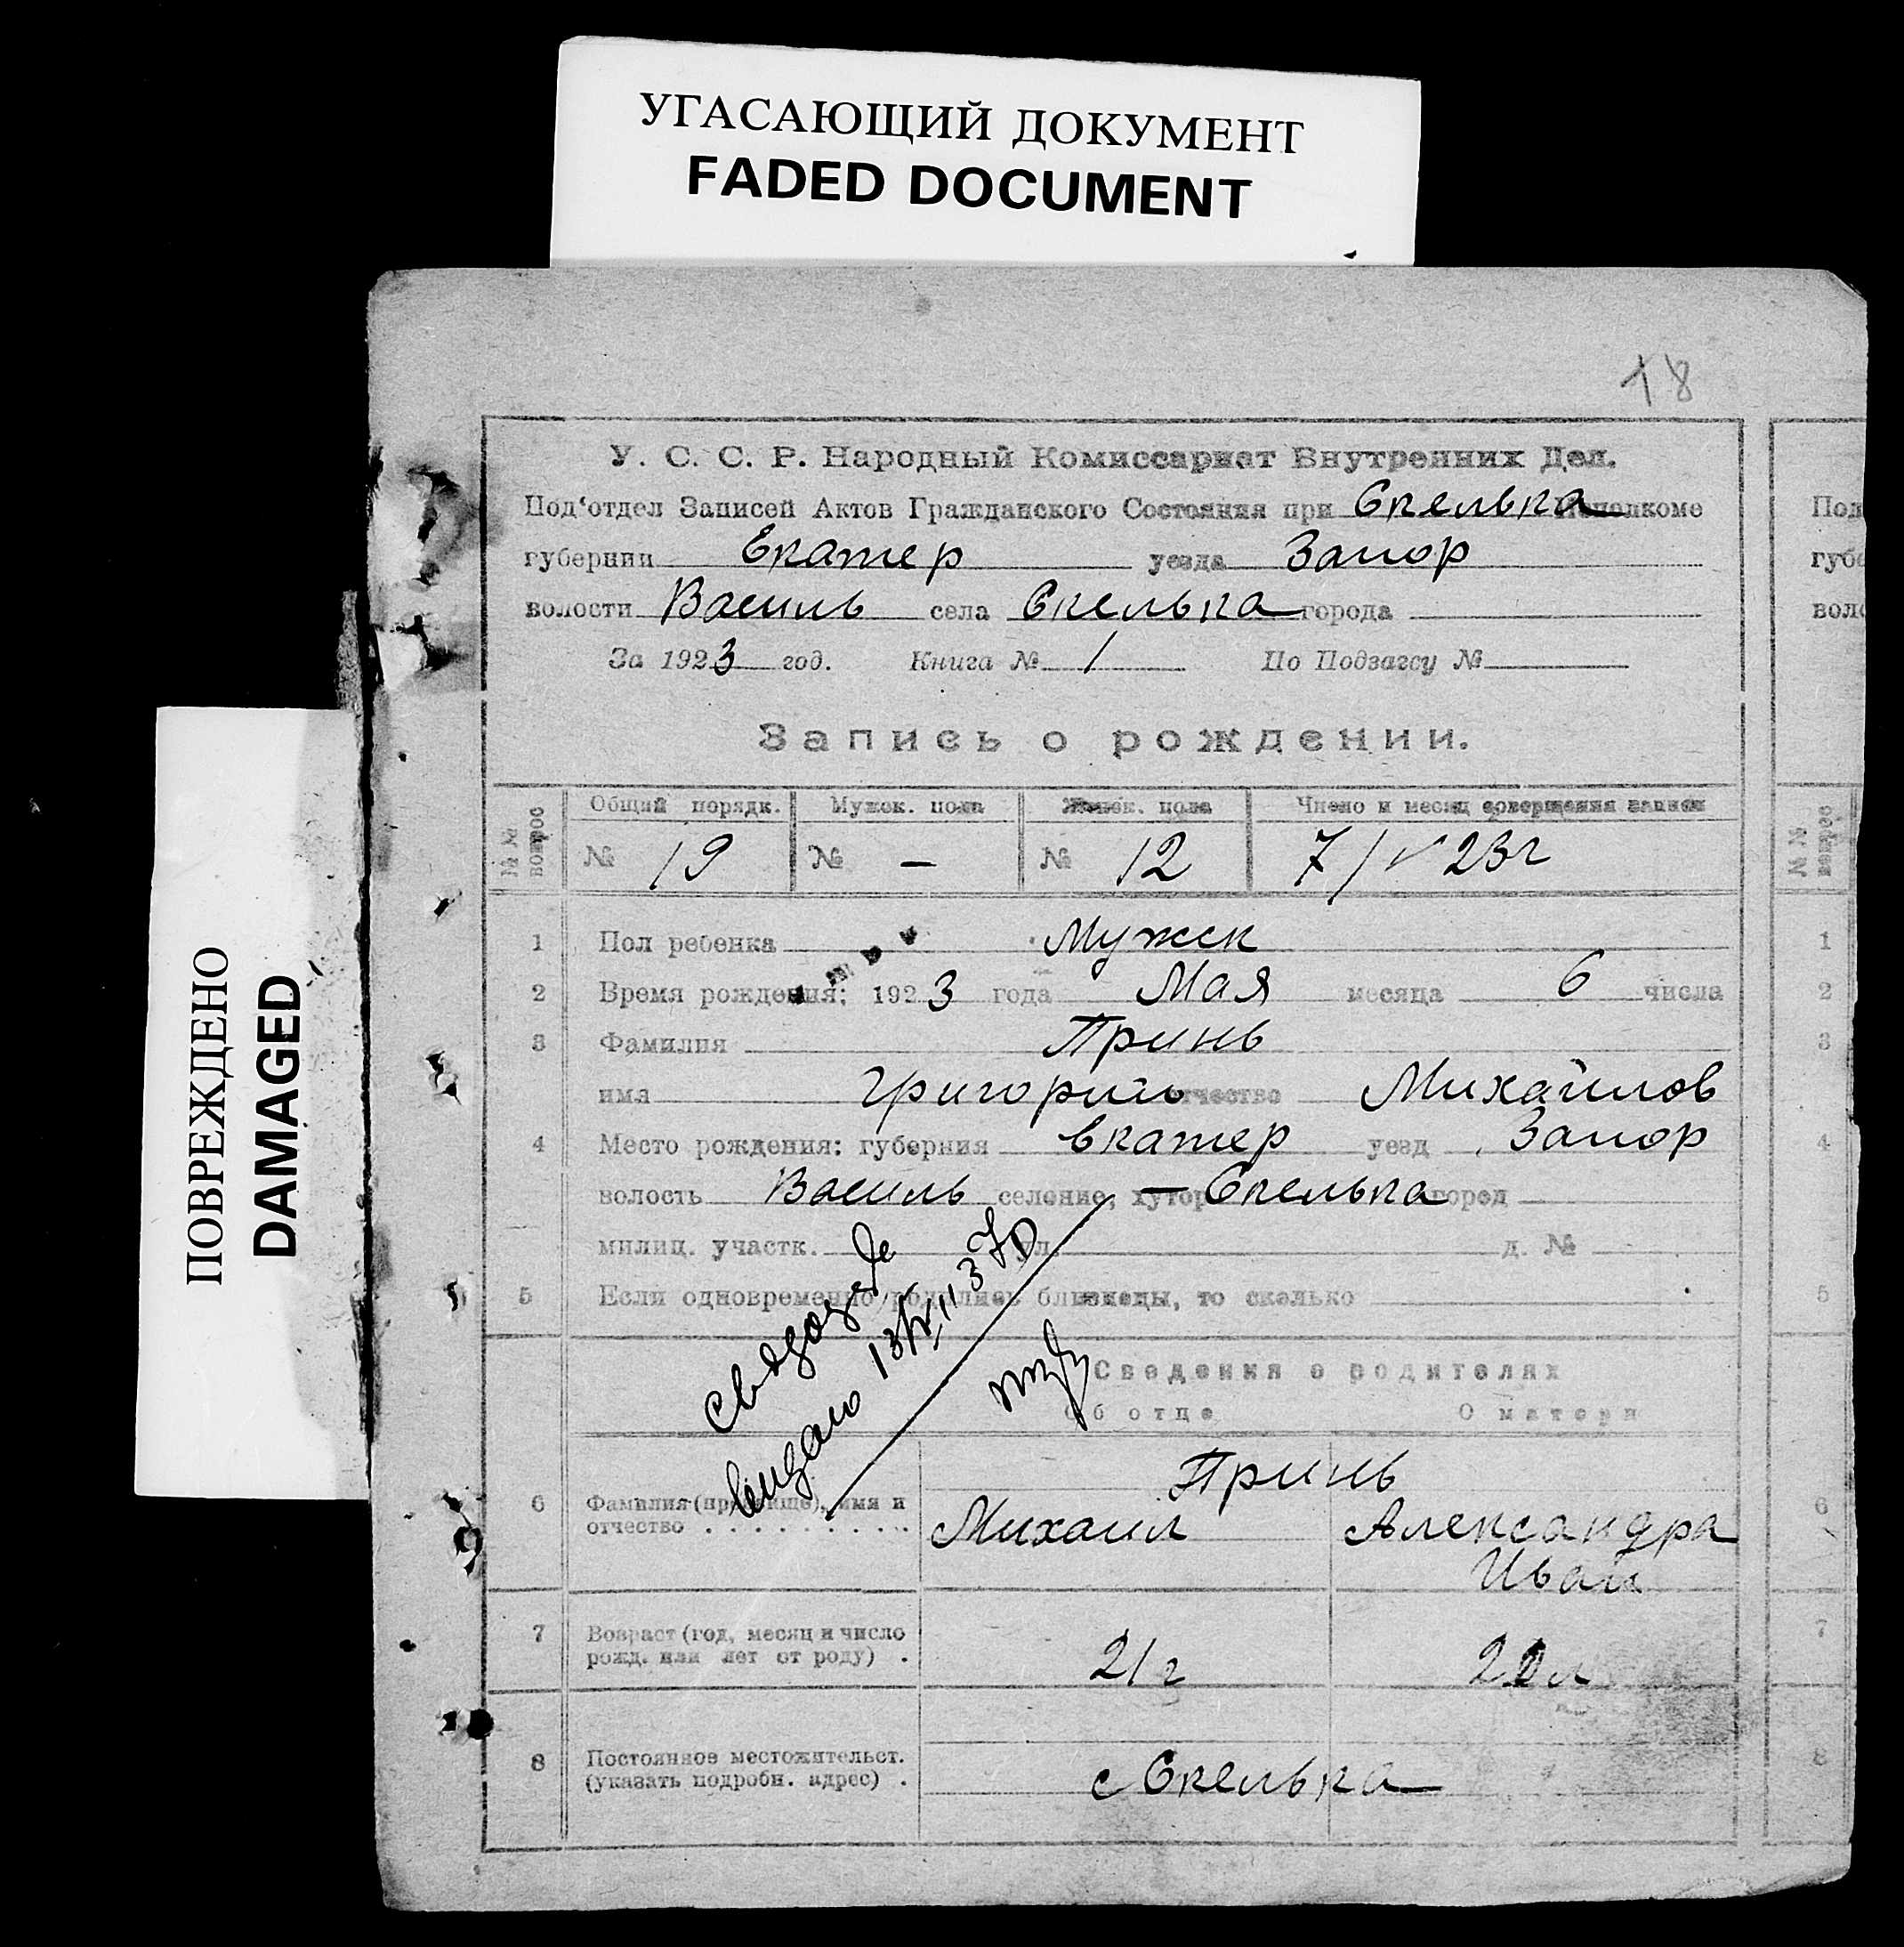 УГАСАЮЩИЙ ДОКУМЕНТ
FADED DOCUMENT
ПОВРЕЖДЕНО
DAMAGED
18
У. С. С. Р. Народный Комиссариат Внутренних Дел.
Под‘отдел Записей Актов Гражданского Состояния при Скелька Исполкоме
губернии Екатер уезда Запор
волости Василь села Скелька города
За 1923 год. Книга № 1 По Подзагсу №
Запись о рождении.
№ № вопрос Общий порядк. Мужск. пола Женск. пола Число и месяц совершения записи
№ 19 № — № 12 7/V 23г
1 Пол ребенка Мужск
2 Время рождения: 1923 года Мая месяца 6 числа
3 Фамилия Принь
имя Григорий отчество Михайлов
4 Место рождения: губерния Екатер уезд Запор
волость Василь селение, хутор — Скелька город
милиц. участк. ул. д. №
5 Если одновременно родились близнецы, то сколько
видано
Сведения о родителях
Об отце О матери
Принь
6 Фамилия (прозвище), имя и отчество Михаил Александра
Иван
7 Возраст (год, месяц и число рожд. или лет от роду) 21 г
8 Постоянное местожительст. (указать подробн. адрес) с Скелька
Под
губе
воло
№ № вопрос
1
2
3
4
5
6
7
8